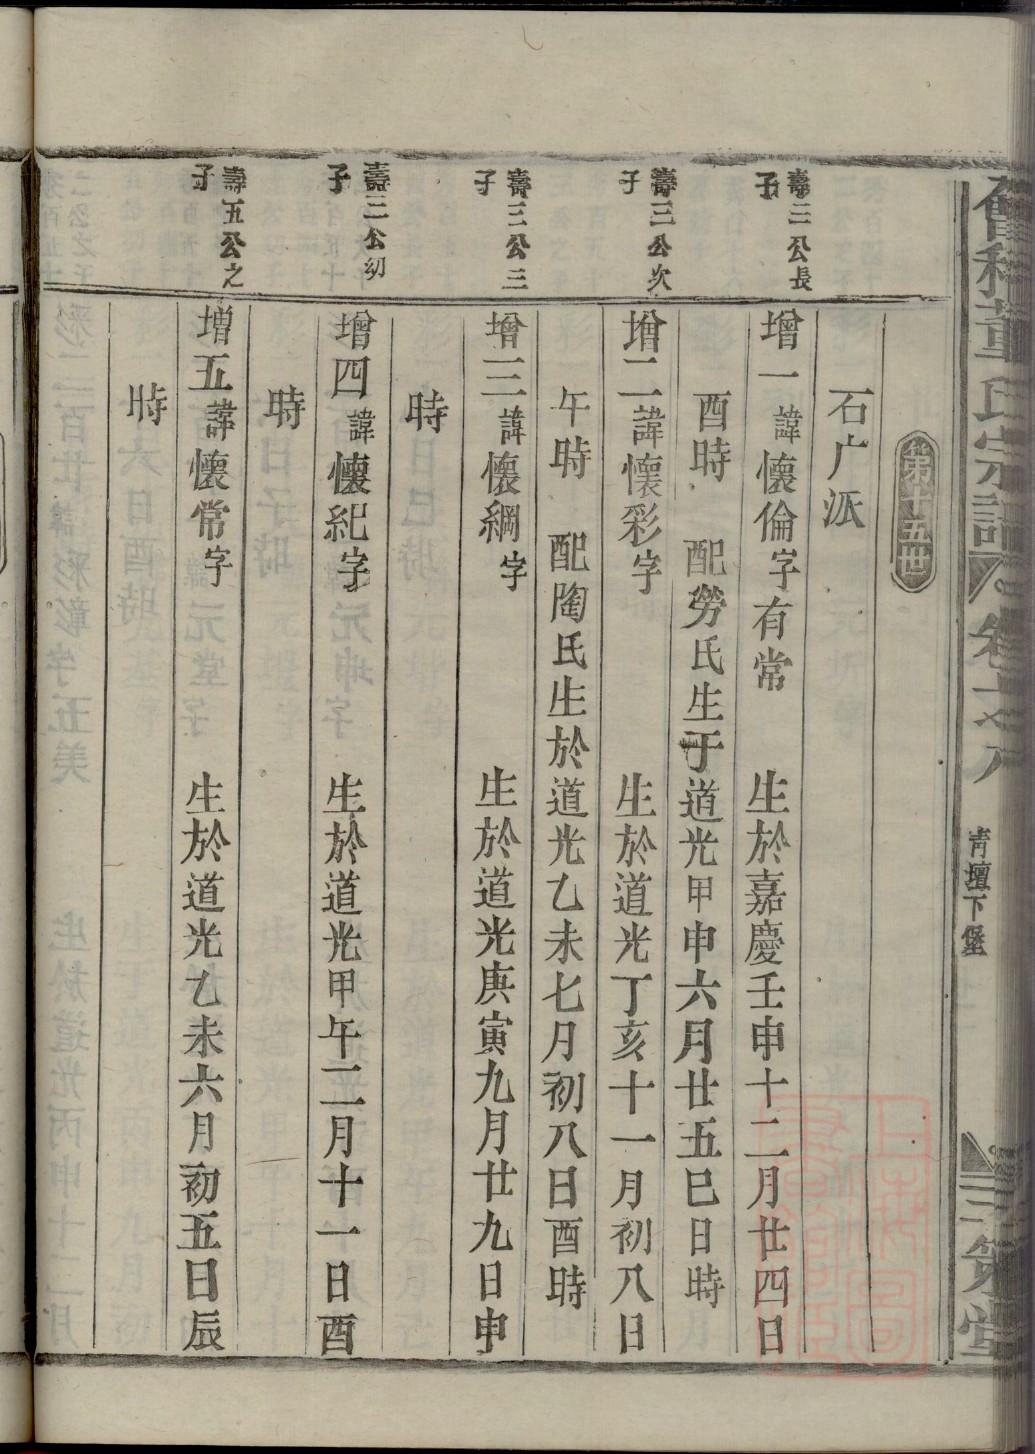 董氏宗譜
卷之八
青壇下堡
三策堂
第十五世
石广派
壽三公長子
增一諱懷倫字有常 生於嘉慶壬申十二月廿四日
酉時 配勞氏生于道光甲申六月廿五巳日時
壽三公次子
增二諱懷彩字 生於道光丁亥十一月初八日
午時 配陶氏生於道光乙未七月初八日酉時
壽三公三子
增三諱懷綱字 生於道光庚寅九月廿九日申
時
壽三公幼子
增四諱懷紀字 生於道光甲午二月十一日酉
時
壽五公之子
增五諱懷常字 生於道光乙未六月初五日辰
時